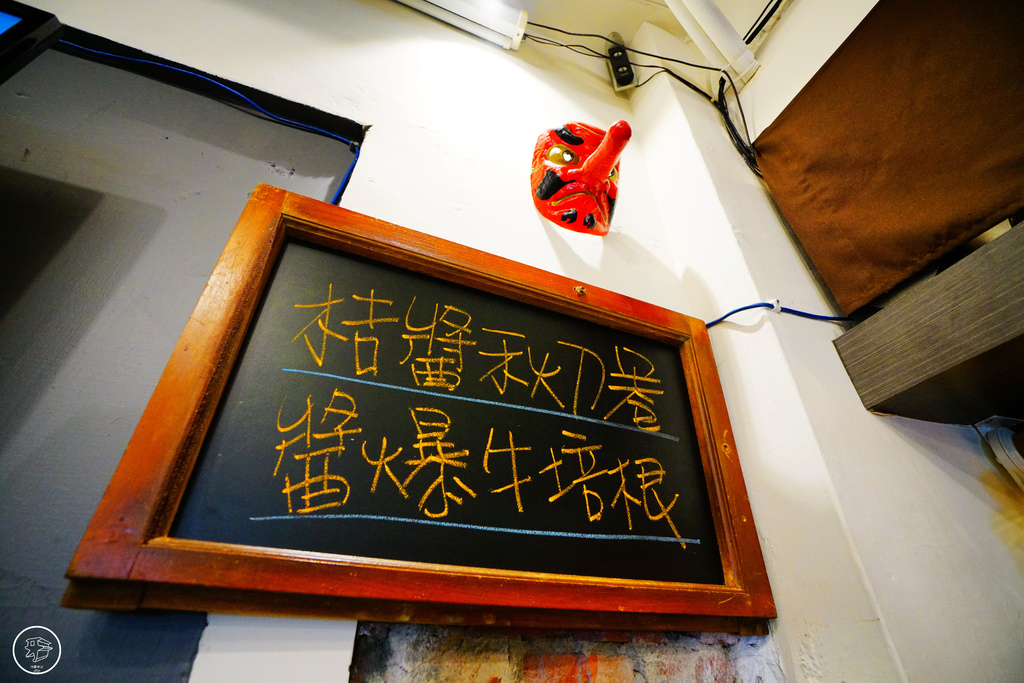 桔醬秋刀卷
醬爆牛培根